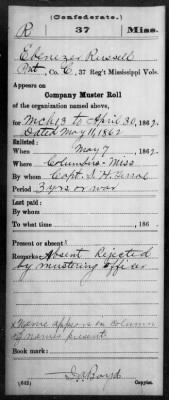 (Confederate.)
R 37 Miss.
Ebenezer Russell
Pvt, Co. C, 37 Reg't Mississippi Vols.
Appears on
Company Muster Roll
of the organization named above,
for Mch 13 to April 30, 1862.
Dated May 11, 1862
Enlisted:
When May 7, 1862.
Where Columbus Miss
By whom Capt. S. H.
Period 3 yrs or war
Last paid:
By whom
To what time , 186 .
Present or absent
Remarks: Absent Rejected
by mustering officer
Name appears in column
of names present.
Book mark:
(642) Boyd Copyist.